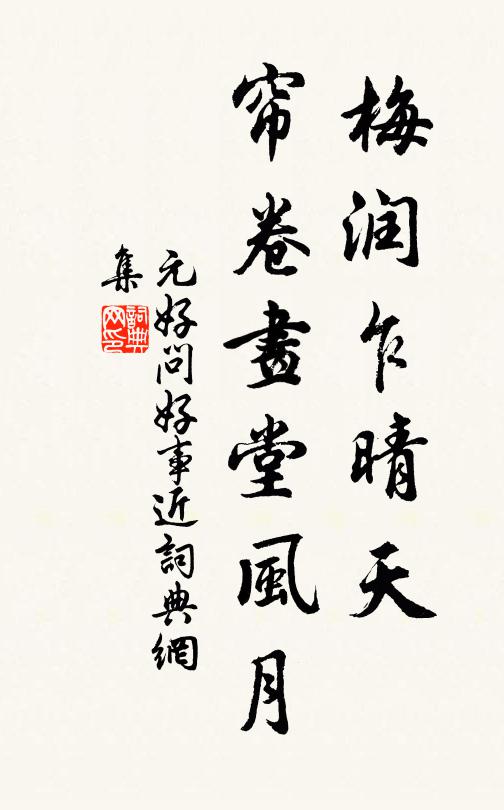 梅润乍晴天
帘卷畫堂風月
元好问好事近詞典網
集
詞典网印